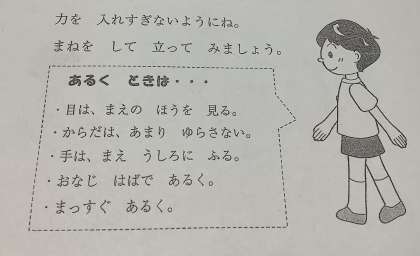 力を 入れすぎないようにね。
まねを して 立って みましょう。
あるく ときは・・・
・目は、まえの ほうを 見る。
・からだは、あまり ゆらさない。
・手は、まえ うしろに ふる。
・おなじ はばで あるく。
・まっすぐ あるく。